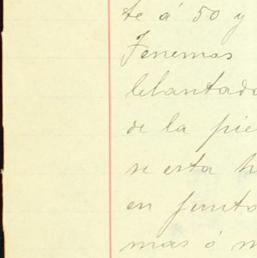 te á 50 y
Tenemos
lebantado
de la pie
se esta h
en junto
mas ó m